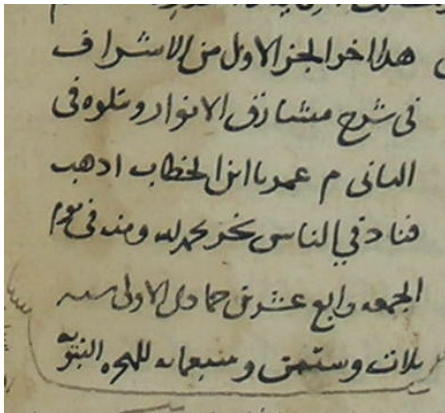 هذا اخر الجز الاول من الاشراف
فى شرح مشارق الانوار ويتلوه فى
الثانى م عمر يا ابن الخطاب اذهب
فناد في الناس نجز بحمد لله ومنه فى يوم
الجمعه رابع عشرين جمادى الاولى سنه
ثلاث وستين وسبعمائه للهجره النبويه